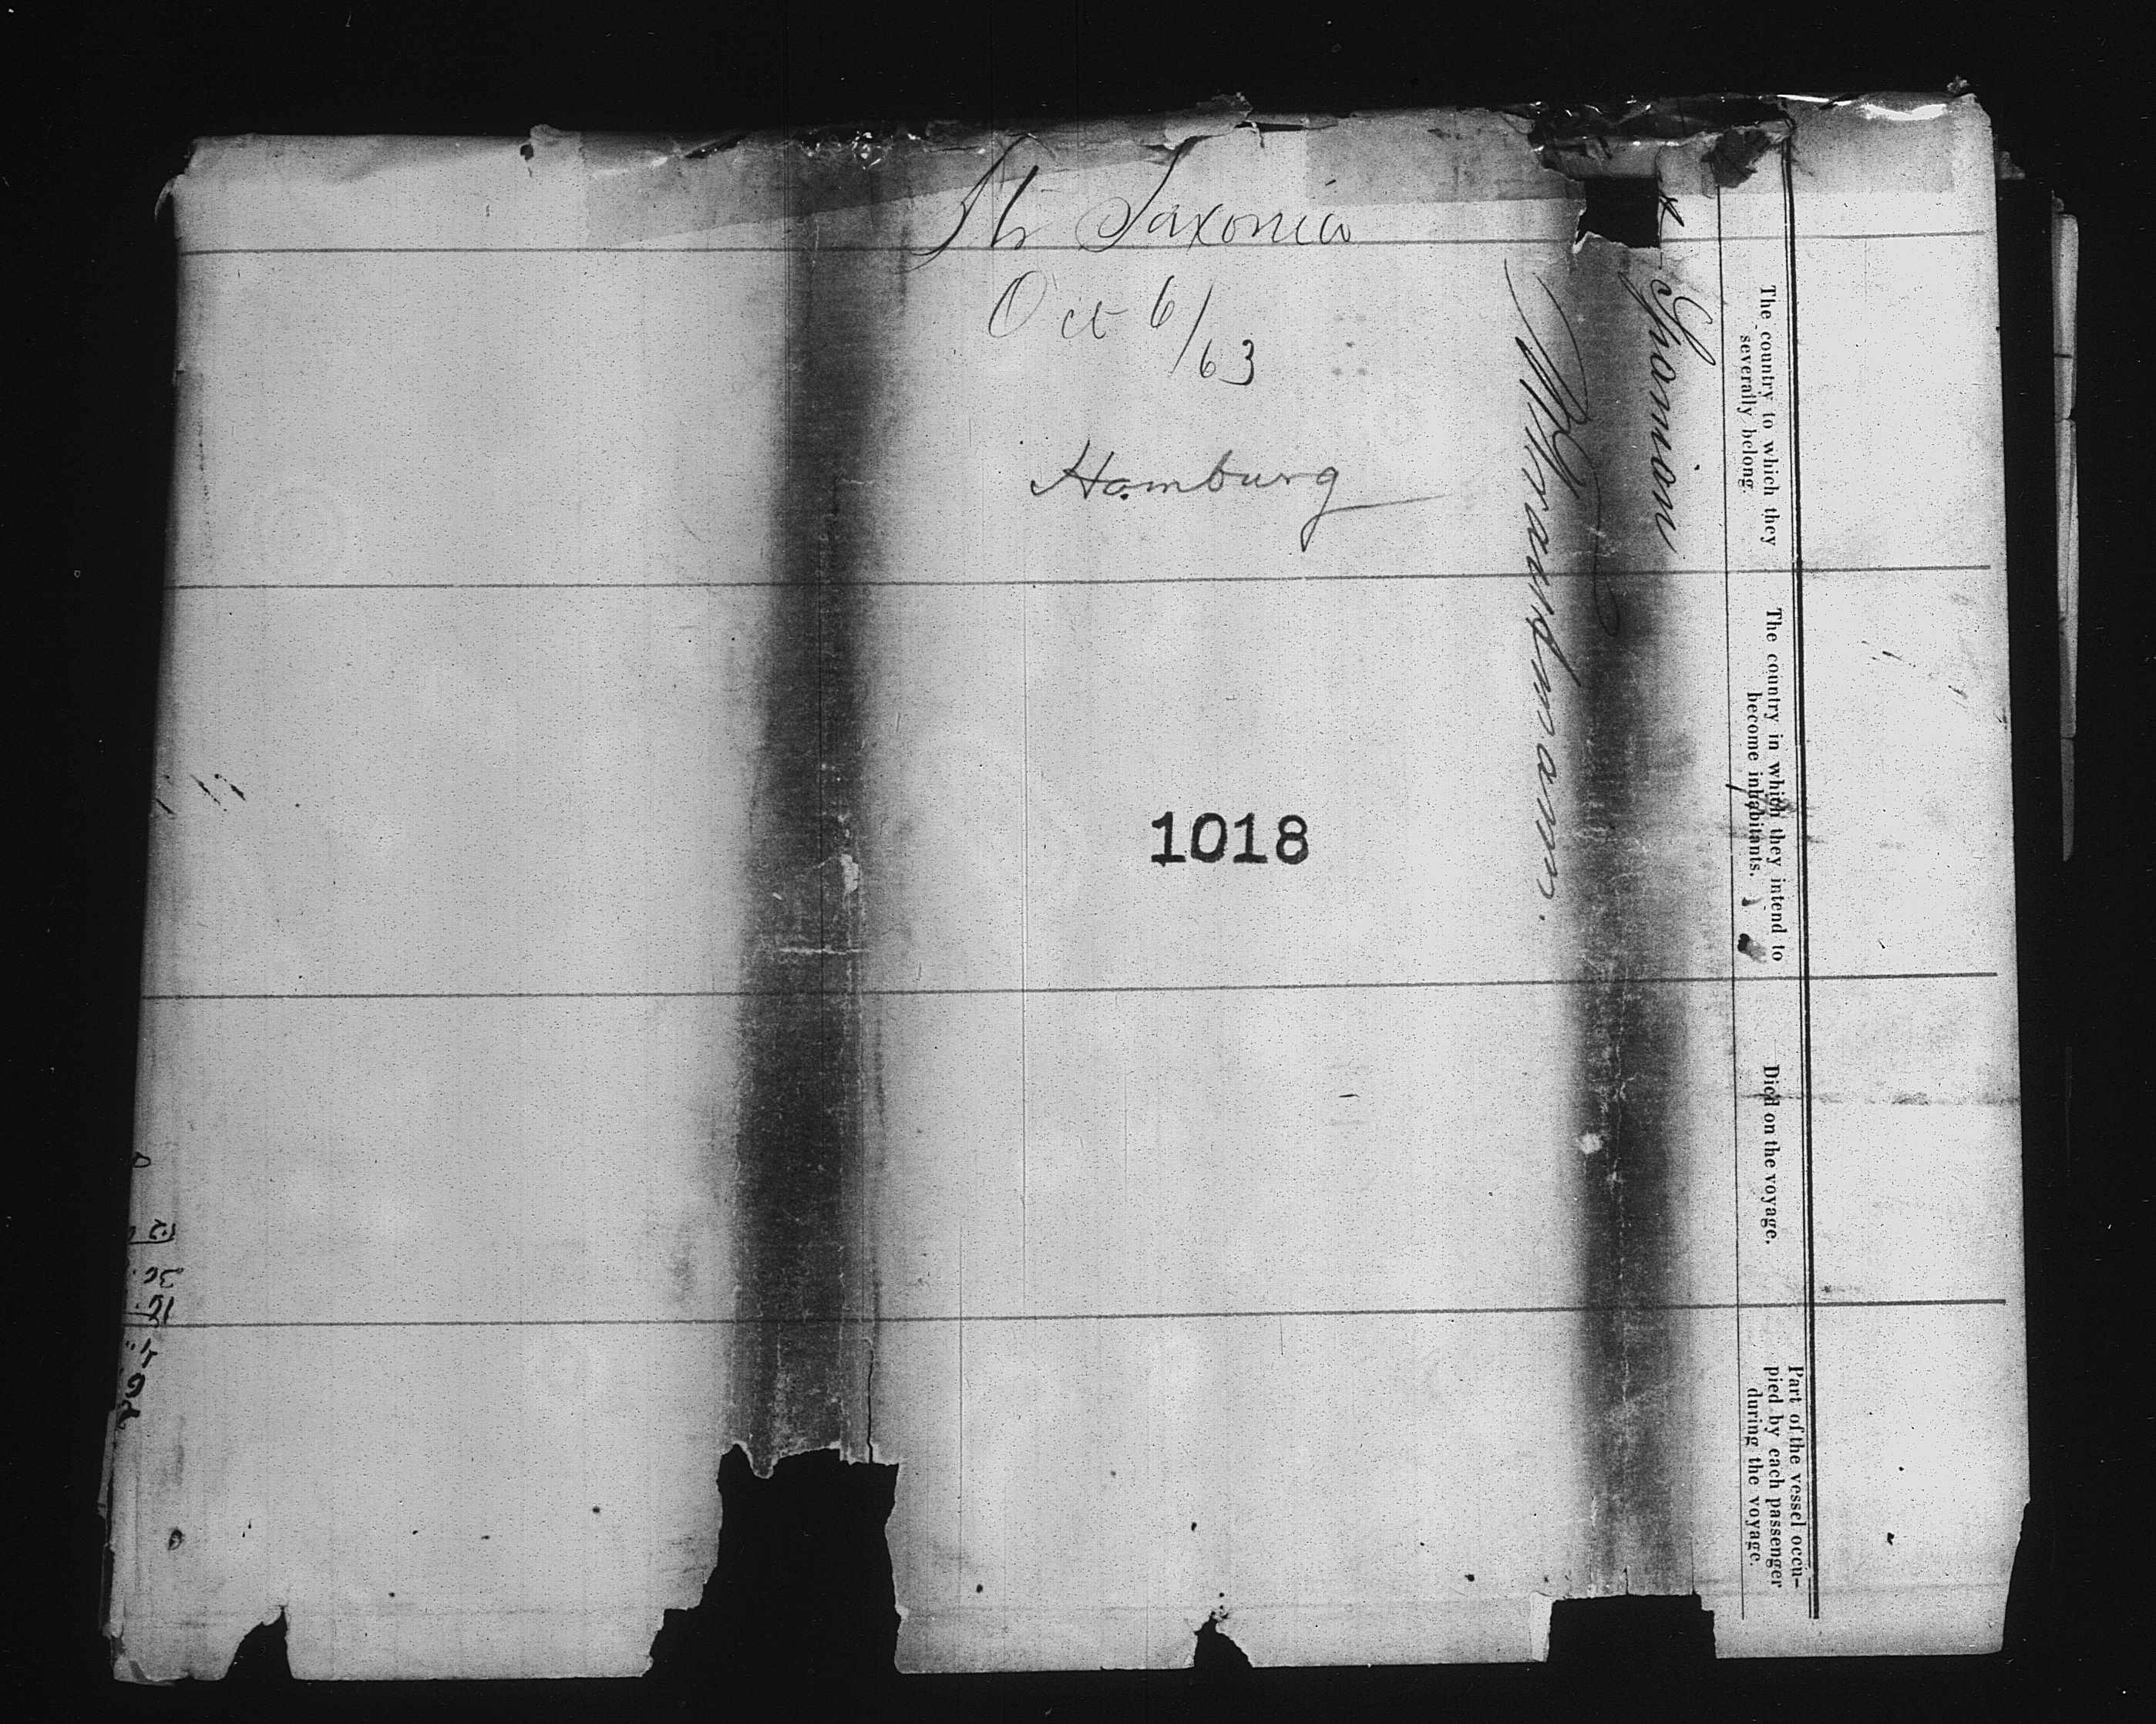 Str Saxonia
Oct 6/63
Hamburg
1018
The country to which they
severally belong.
The country in which they intend to
become inhabitants.
Died on the voyage.
Part of the vessel occu-
pied by each passenger
during the voyage.